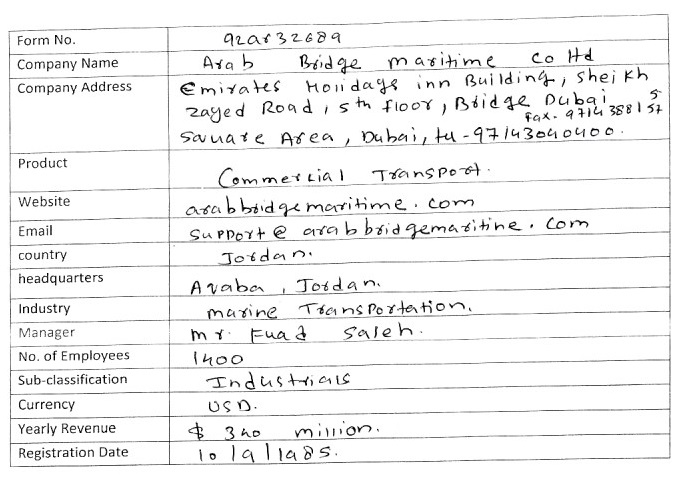 Form No. 92ar32689
Company Name Arab Bridge maritime co ltd
Company Address Emirates Holidays inn Building, sheikh
zayed Road, 5th floor, Bridge Dubai
Fax - 97143881557
Savuare Area, Dubai, tel - 97143040400.
Product Commercial Transport.
Website arabbridgemaritime.com
Email support@arabbridgemaritine.com
country Jordan.
headquarters Aqaba, Jordan.
Industry marine Transportation.
Manager mr. Fuad saleh.
No. of Employees 1400
Sub-classification Industrials
Currency USD.
Yearly Revenue $ 340 million.
Registration Date 10/9/1985.